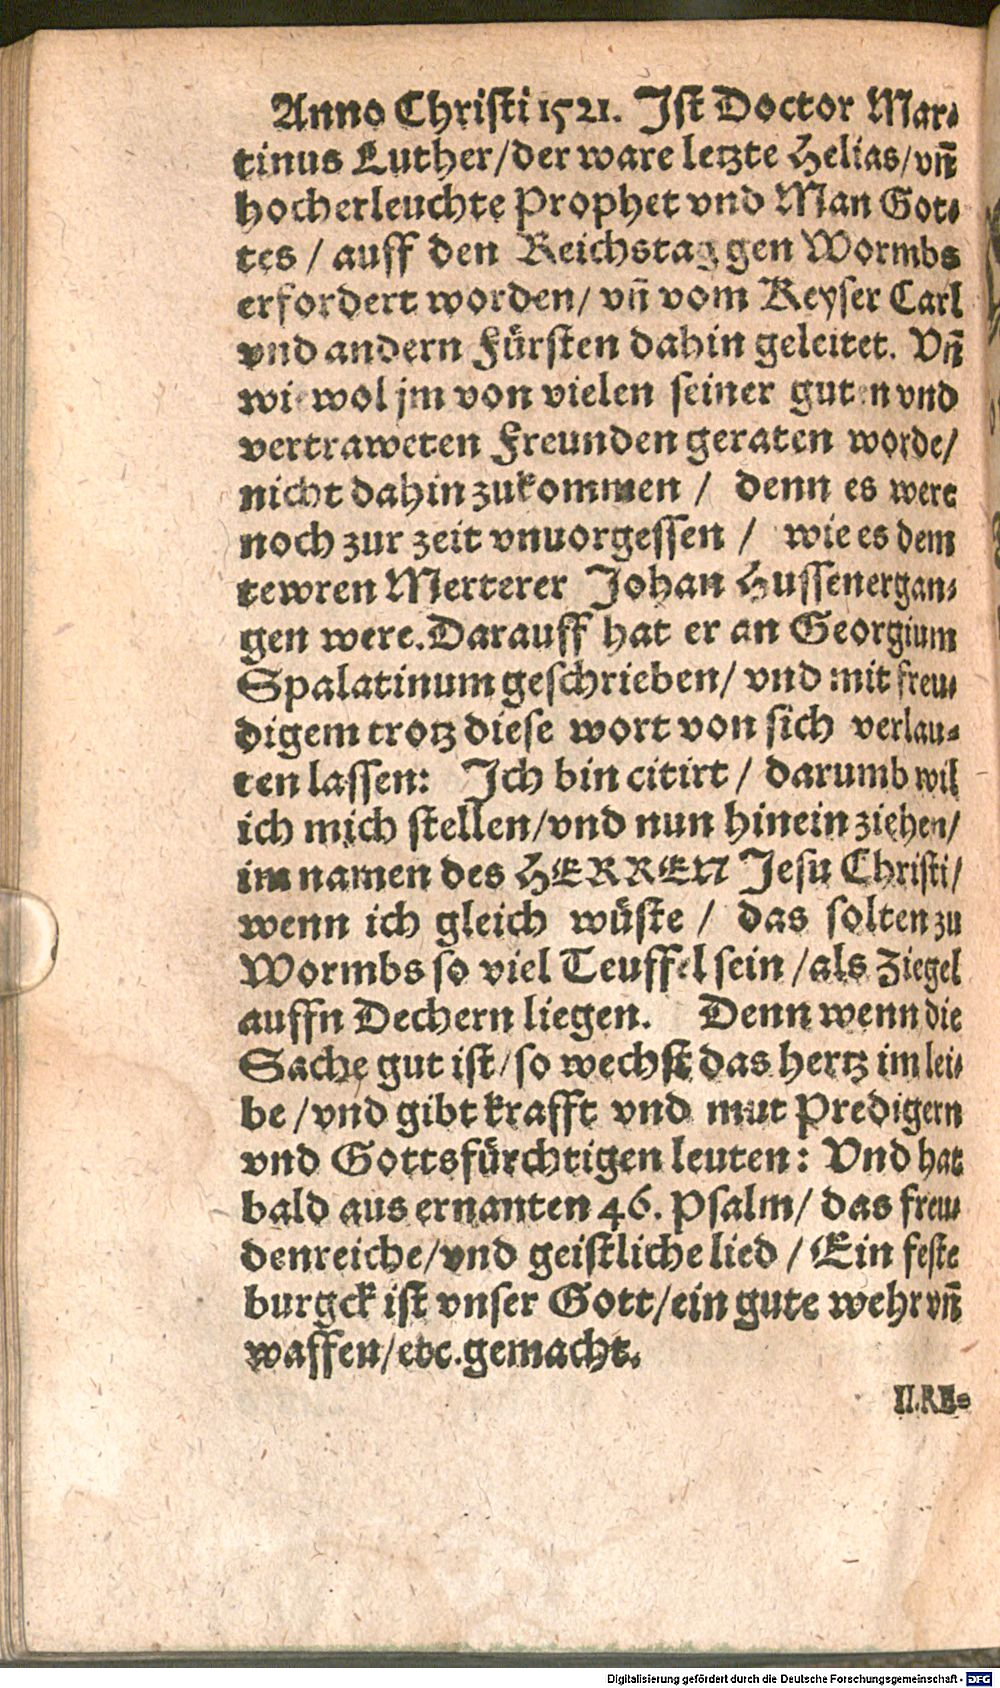 Anno Christi 1521. Ist Doctor Mar⸗
tinus Luther/der ware letzte Helias/vñ
hocherleuchte Prophet vnd Man Got⸗
tes / auff den Reichstag gen Wormbs
erfordert worden/ vñ vom Keyser Carl
vnd andern Fürsten dahin geleitet. Vñ
wie wol jm von vielen seiner guten vnd
vertraweten Freunden geraten worde/
nicht dahin zukommen / denn es were
noch zur zeit vnuorgessen / wie es dem
tewren Merterer Johan Hussen ergan⸗
gen were. Darauff hat er an Georgium
Spalatinum geschrieben/ vnd mit freu⸗
digem trotz diese wort von sich verlau⸗
ten lassen: Ich bin citirt / darumb wil
ich mich stellen/vnd nun hinein ziehen/
im namen des HERREN Jesu Christi/
wenn ich gleich wüste / das solten zu
Wormbs so viel Teuffel sein /als Ziegel
auffn Dechern liegen. Denn wenn die
Sache gut ist/so wechst das hertz im lei⸗
be /vnd gibt krafft vnd mut Predigern
vnd Gottsfürchtigen leuten: Vnd hat
bald aus ernanten 46. Psalm/ das freu⸗
denreiche/vnd geistliche lied / Ein feste
burgck ist vnser Gott/ein gute wehr vñ
waffen/etc.gemacht.
II.RE⸗
Digitalisierung gefördert durch die Deutsche Forschungsgemeinschaft - DFG